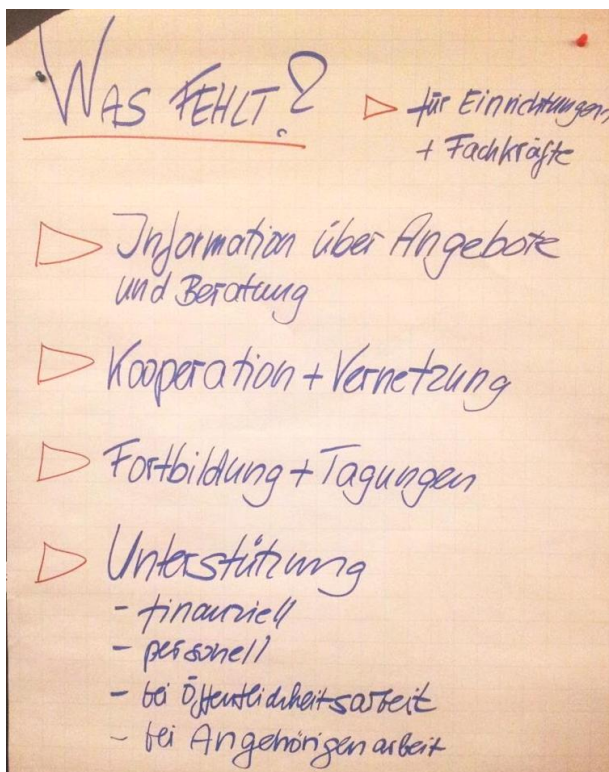 WAS FEHLT?
für Einrichtungen
+ Fachkräfte
Information über Angebote
und Beratung
Kooperation + Vernetzung
Fortbildung + Tagungen
Unterstützung
- finanziell
- personell
- bei Öffentlichkeitsarbeit
- bei Angehörigenarbeit